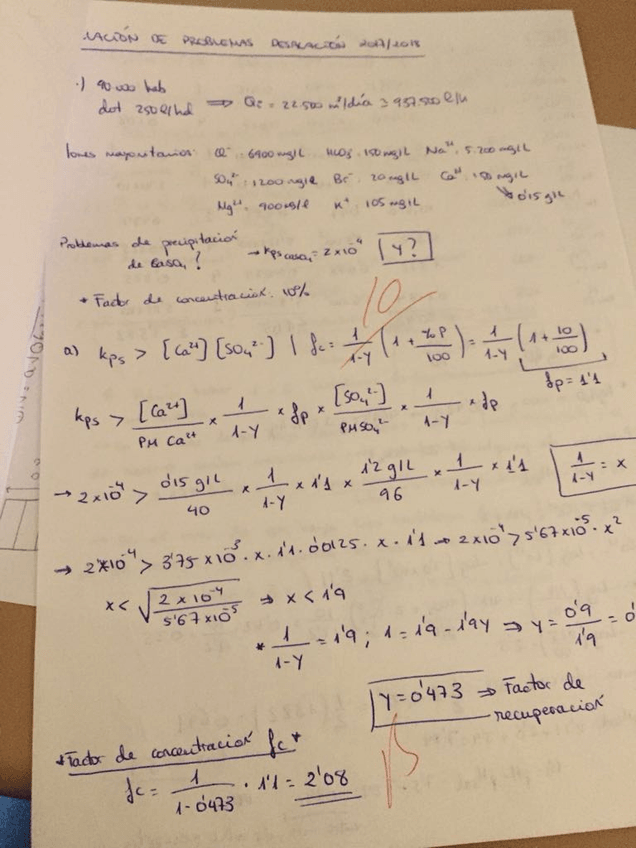 LACIÓN DE PROBLEMAS DESALACIÓN 2017/2018
·) 90.000 hab
dot 250 l/hd ⟹ Qc = 22.500 m³/día ≅ 937.500 l/h
Iones mayoritarios: Cl⁻: 6900 mg/L HCO₃⁻: 150 mg/L Na⁺: 5.200 mg/L
SO₄²⁻: 1200 mg/l Br⁻: 20 mg/L Ca²⁺: 150 mg/L
Mg²⁺: 900 mg/l K⁺: 105 mg/L ↳ 0'15 g/L
Problemas de precipitación
de CaSO₄? → Kps CaSO₄ = 2×10⁻⁴ Y?
* Factor de concentración: 10%
10
a) Kps > [Ca²⁺][SO₄²⁻] | fc = 1/(1-Y) (1 + %P/100) = 1/(1-Y) (1 + 10/100)
fp = 1'1
Kps > [Ca²⁺]/PM Ca²⁺ × 1/(1-Y) × fp × [SO₄²⁻]/PM SO₄²⁻ × 1/(1-Y) × fp
→ 2×10⁻⁴ > 0'15 g/L/40 × 1/(1-Y) × 1'1 × 1'2 g/L/96 × 1/(1-Y) × 1'1 1/(1-Y) = x
→ 2×10⁻⁴ > 3'75×10⁻³ · x · 1'1 · 0'0125 · x · 1'1 ⇒ 2×10⁻⁴ > 5'67×10⁻⁵ · x²
x < √(2×10⁻⁴/5'67×10⁻⁵) ⇒ x < 1'9
* 1/(1-Y) = 1'9 ; 1 = 1'9 - 1'9Y ⇒ Y = 0'9/1'9 = 0'
Y = 0'473 ⇒ Factor de
recuperación
*Factor de concentración fc*
fc = 1/(1-0'473) · 1'1 = 2'08